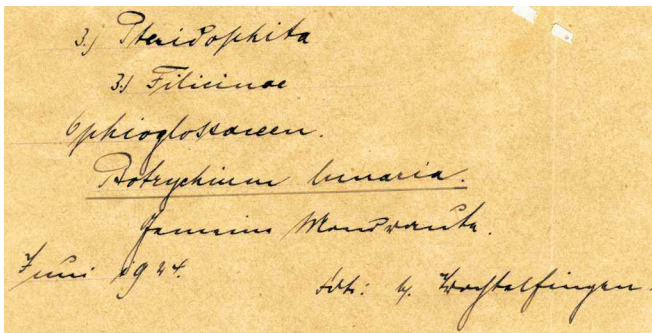 3.) Pteridophita
3.) Filicinae
Ophioglossaceen.
Botrychium lunaria.
Gemeine Mondraute.
Juni 1924.
Fdt: b. Wachtelfingen.